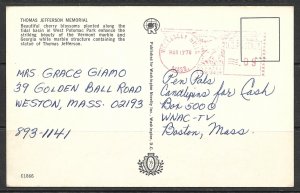 THOMAS JEFFERSON MEMORIAL
Beautiful cherry blossoms planted along the
tidal basin in West Potomac Park enhance
the striking beauty of the Vermont marble and
Georgia white marble structure containing the
statue of Thomas Jefferson.
MRS. GRACE GIAMO
39 GOLDEN BALL ROAD
WESTON, MASS. 02193
893-1141
E1866
Published for Washington Novelty Inc. Washington, D.C.
MASS.
Pen Pals
Candlepins for Cash
Box 5000
WNAC-TV
Boston, Mass.